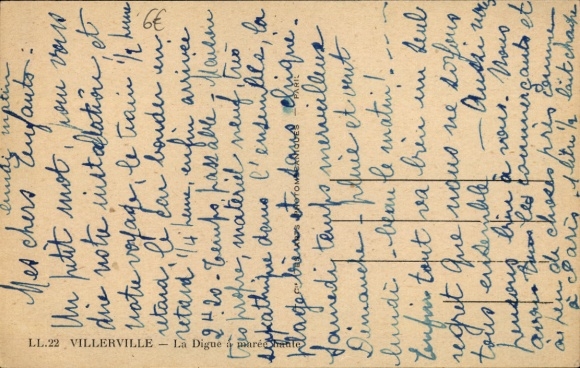 6€
lundi matin
Mes chers Enfants :
Un p'tit mot, pour vous
dire notre installation et
notre voyage, le train 1/4 heure
retard, le car bondé en
retard 1/4 heure, enfin arrivée
2h20 - Temps passable - Maison
très propre, matériel neuf, très
sympathique dans l'ensemble, la
plage bien et sans clique.
Samedi, temps merveilleux
Dimanche - pluie et vent
lundi - beau le matin! - - -
Enfin tout va bien un seul
regret que nous ne soyons
tous ensemble — Aussi nous
pensons bien à vous. Nous
avons les commerçants et
à peu de choses près comme
à Paris, le lait chaud
PARIS
LL.22 VILLERVILLE — La Digue à marée haute